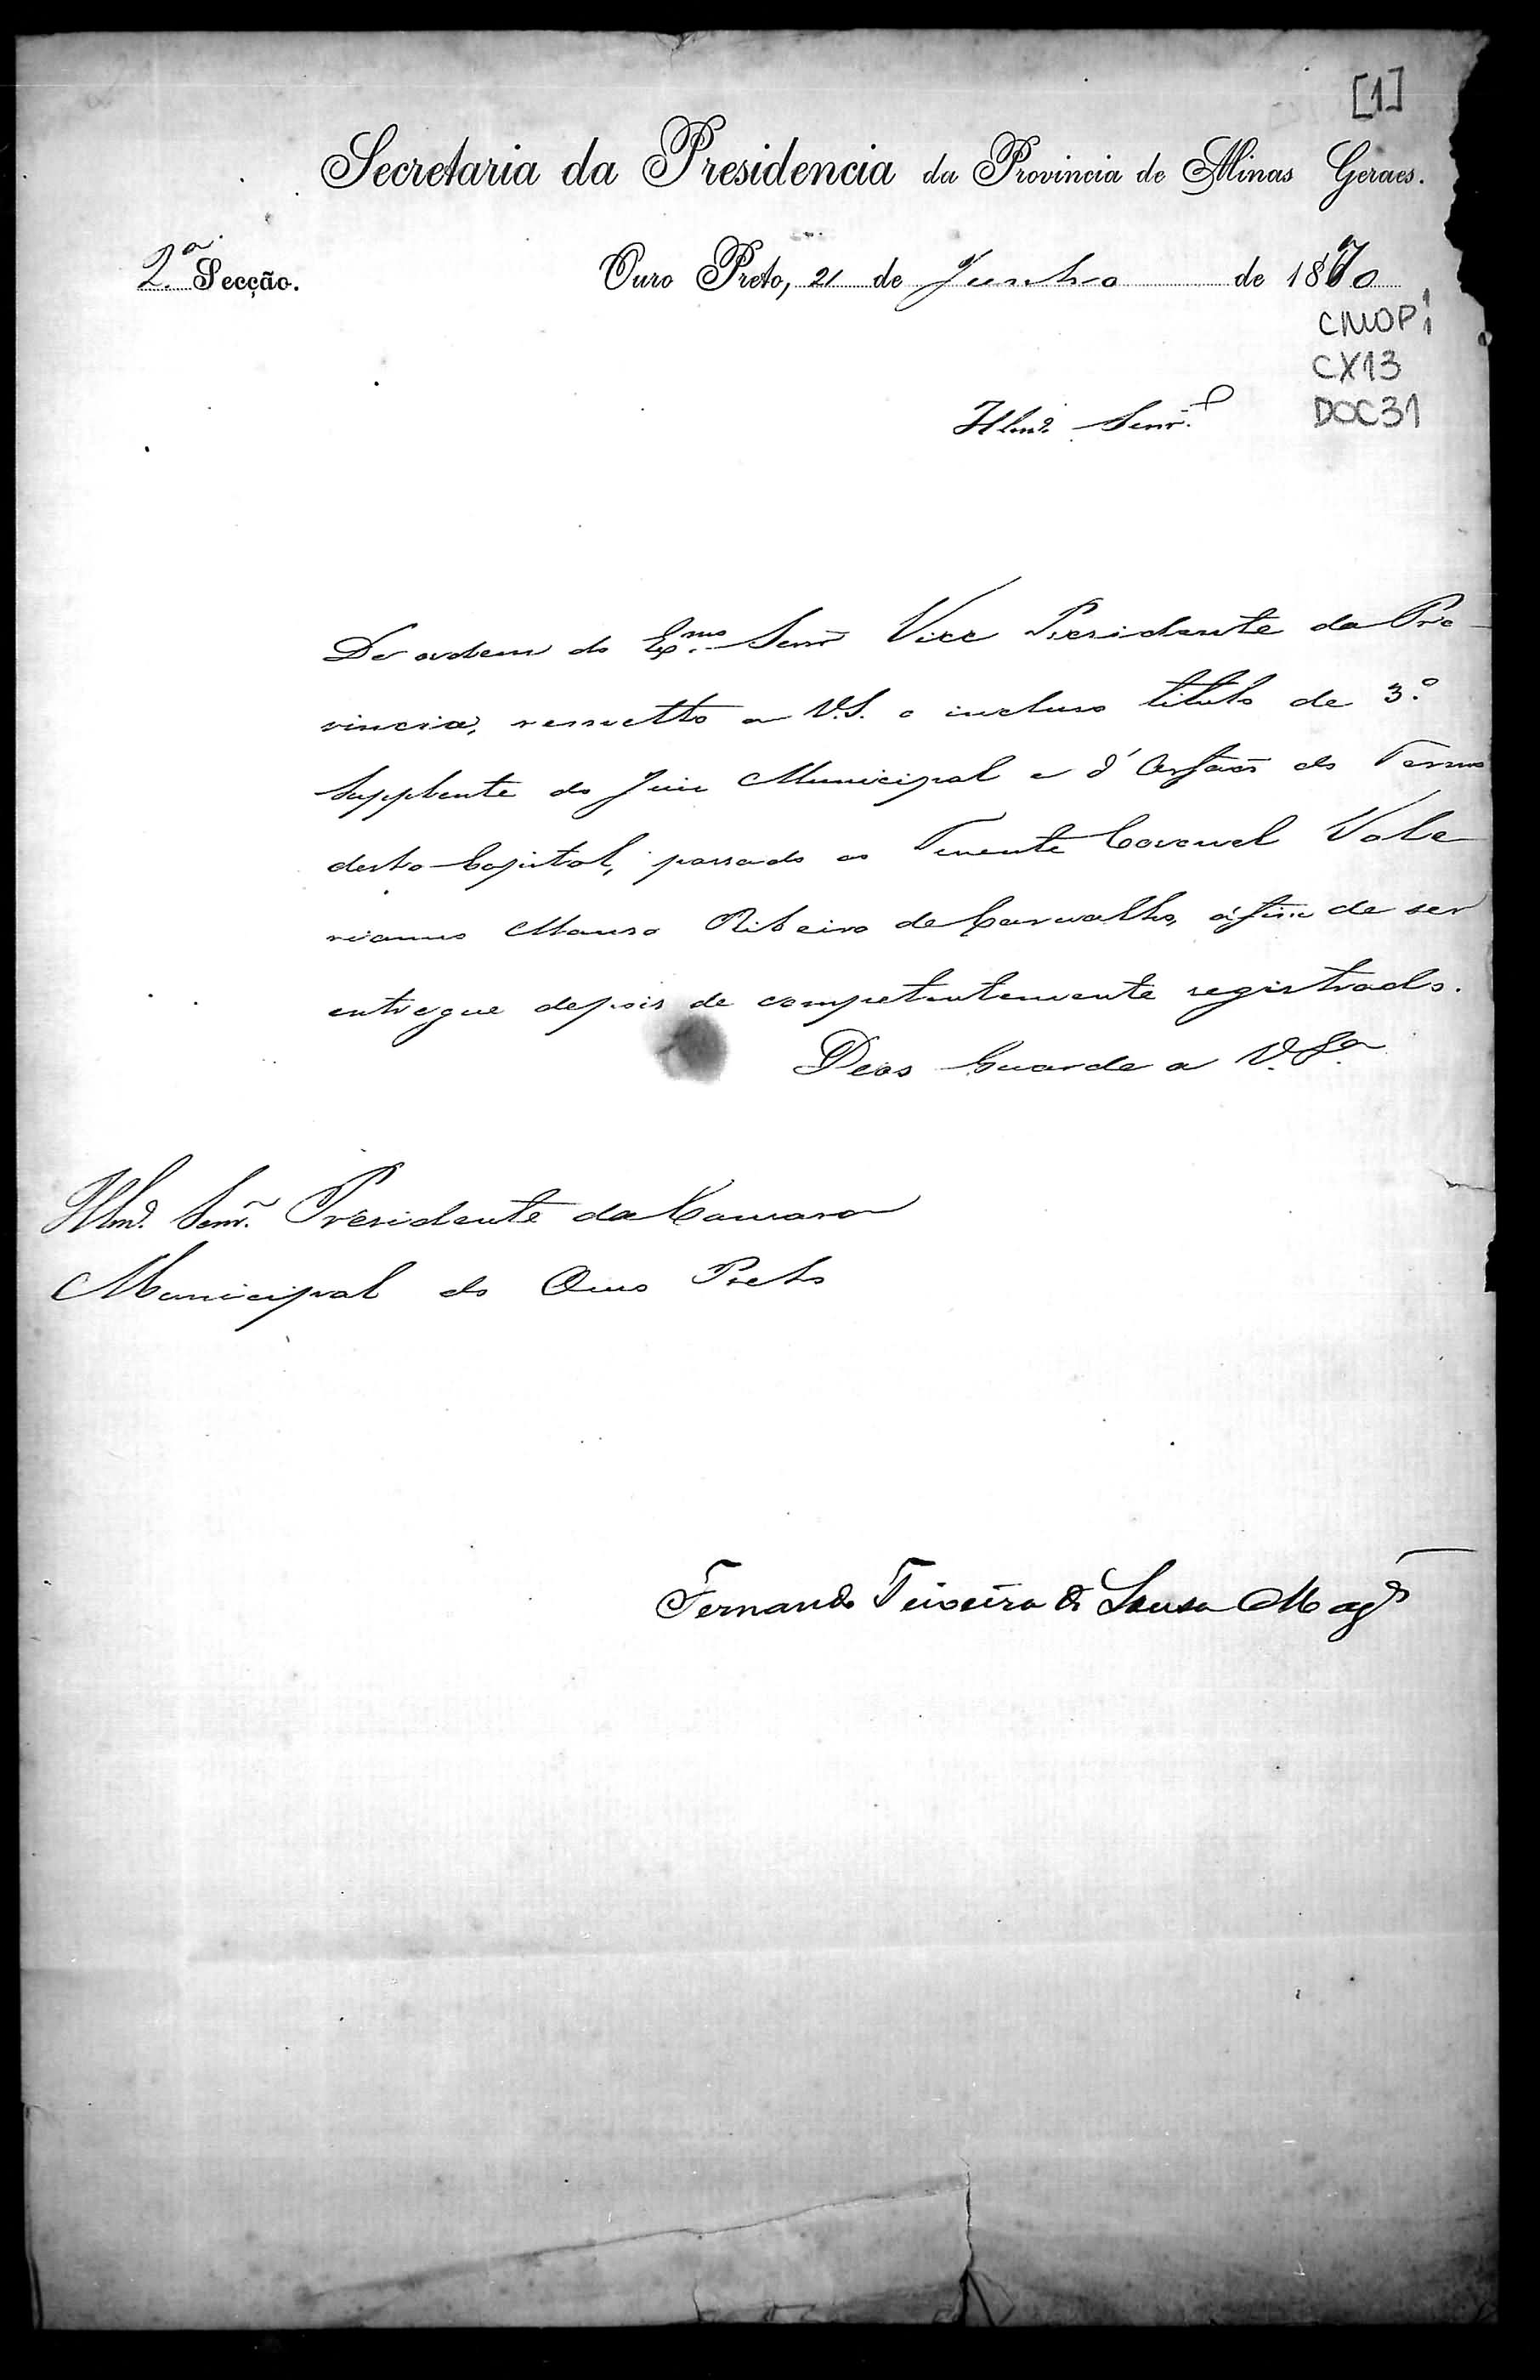 [1]
Secretaria da Presidencia da Provincia de Minas Geraes.
2.ª Secção.
Ouro Preto, 21 de Junho de 1870
CMOP 1/1
CX13
DOC31
Illmº. Senr.
De ordem do Exmo. Senr Vice Presidente da Pro-
vincia, remetto a V.S. o incluso titulo de 3.º
Supplente do Juiz Municipal e d'Orfãos do Termo
desta Capital, passado ao Tenente Coronel Vale
rianno Manso Ribeiro de Carvalho, afim de ser
entregue depois de competentemente registrado.
Deos Guarde a V. Sª
Illmº. Senr. Presidente da Camara
Municipal do Ouro Preto
Fernando Teixeira de Sousa Mag.es